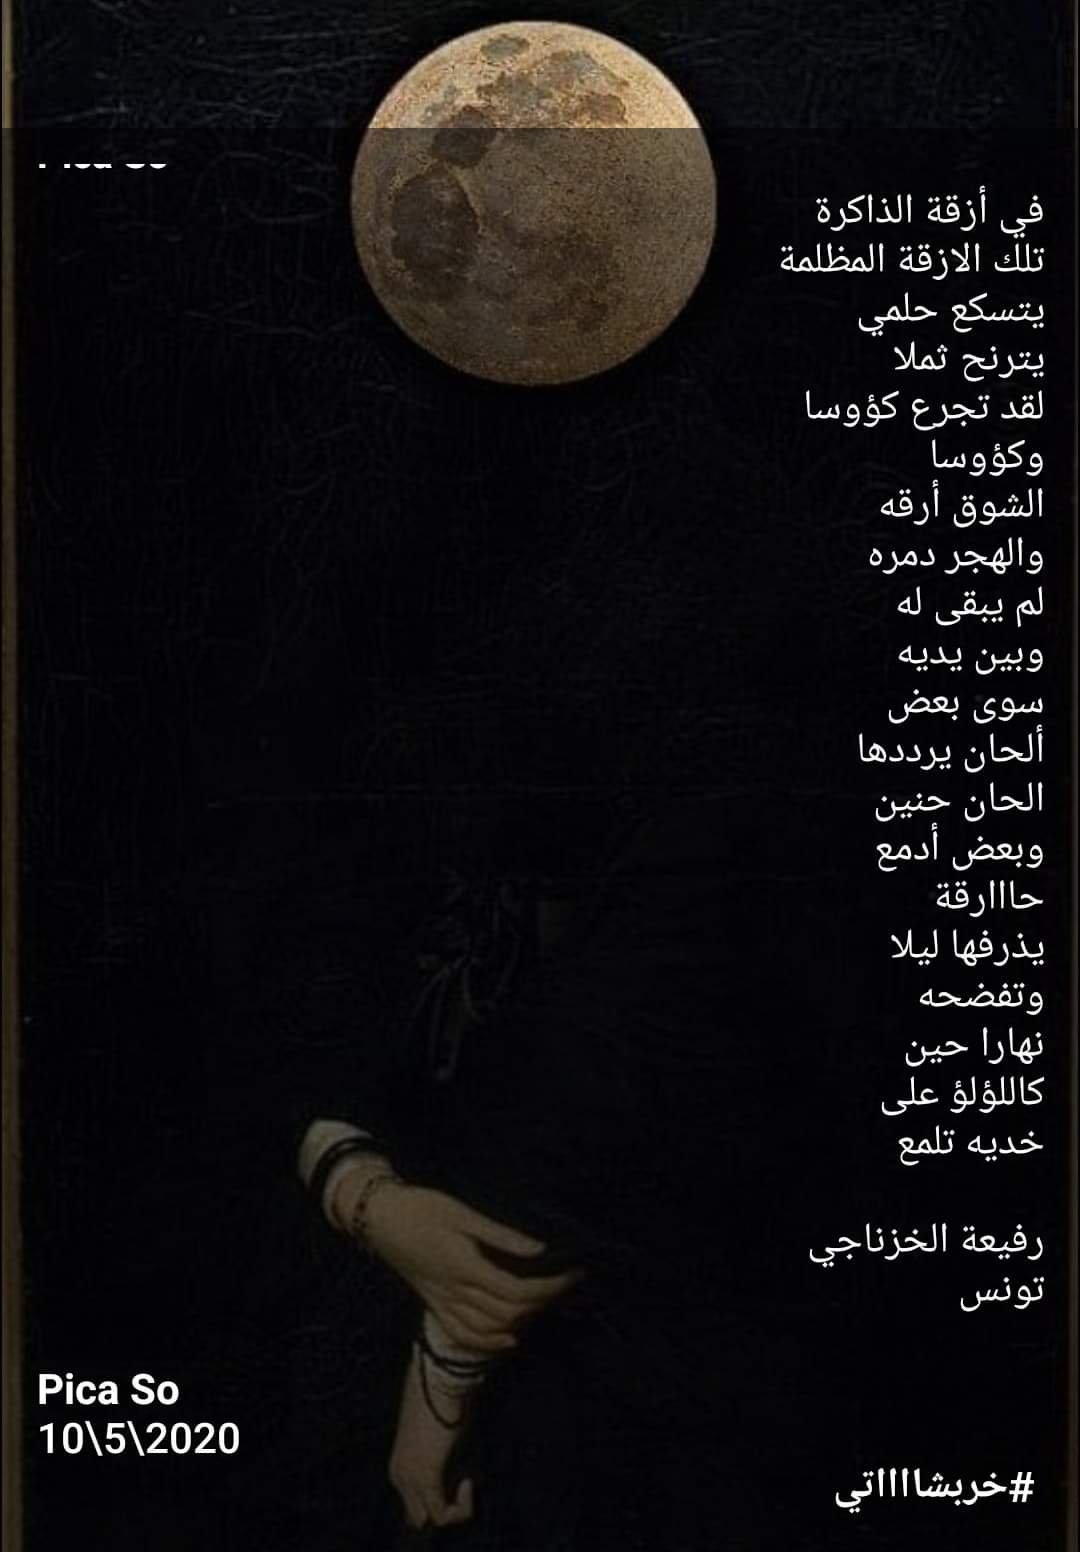 في أزقة الذاكرة
تلك الازقة المظلمة
يتسكع حلمي
يترنح ثملا
لقد تجرع كؤوسا
وكؤوسا
الشوق أرقه
والهجر دمره
لم يبقى له
وبين يديه
سوى بعض
ألحان يرددها
الحان حنين
وبعض أدمع
حااارقة
يذرفها ليلا
وتفضحه
نهارا حين
كاللؤلؤ على
خديه تلمع
رفيعة الخزناجي
تونس
Pica So
10\5\2020
#خربشااااتي